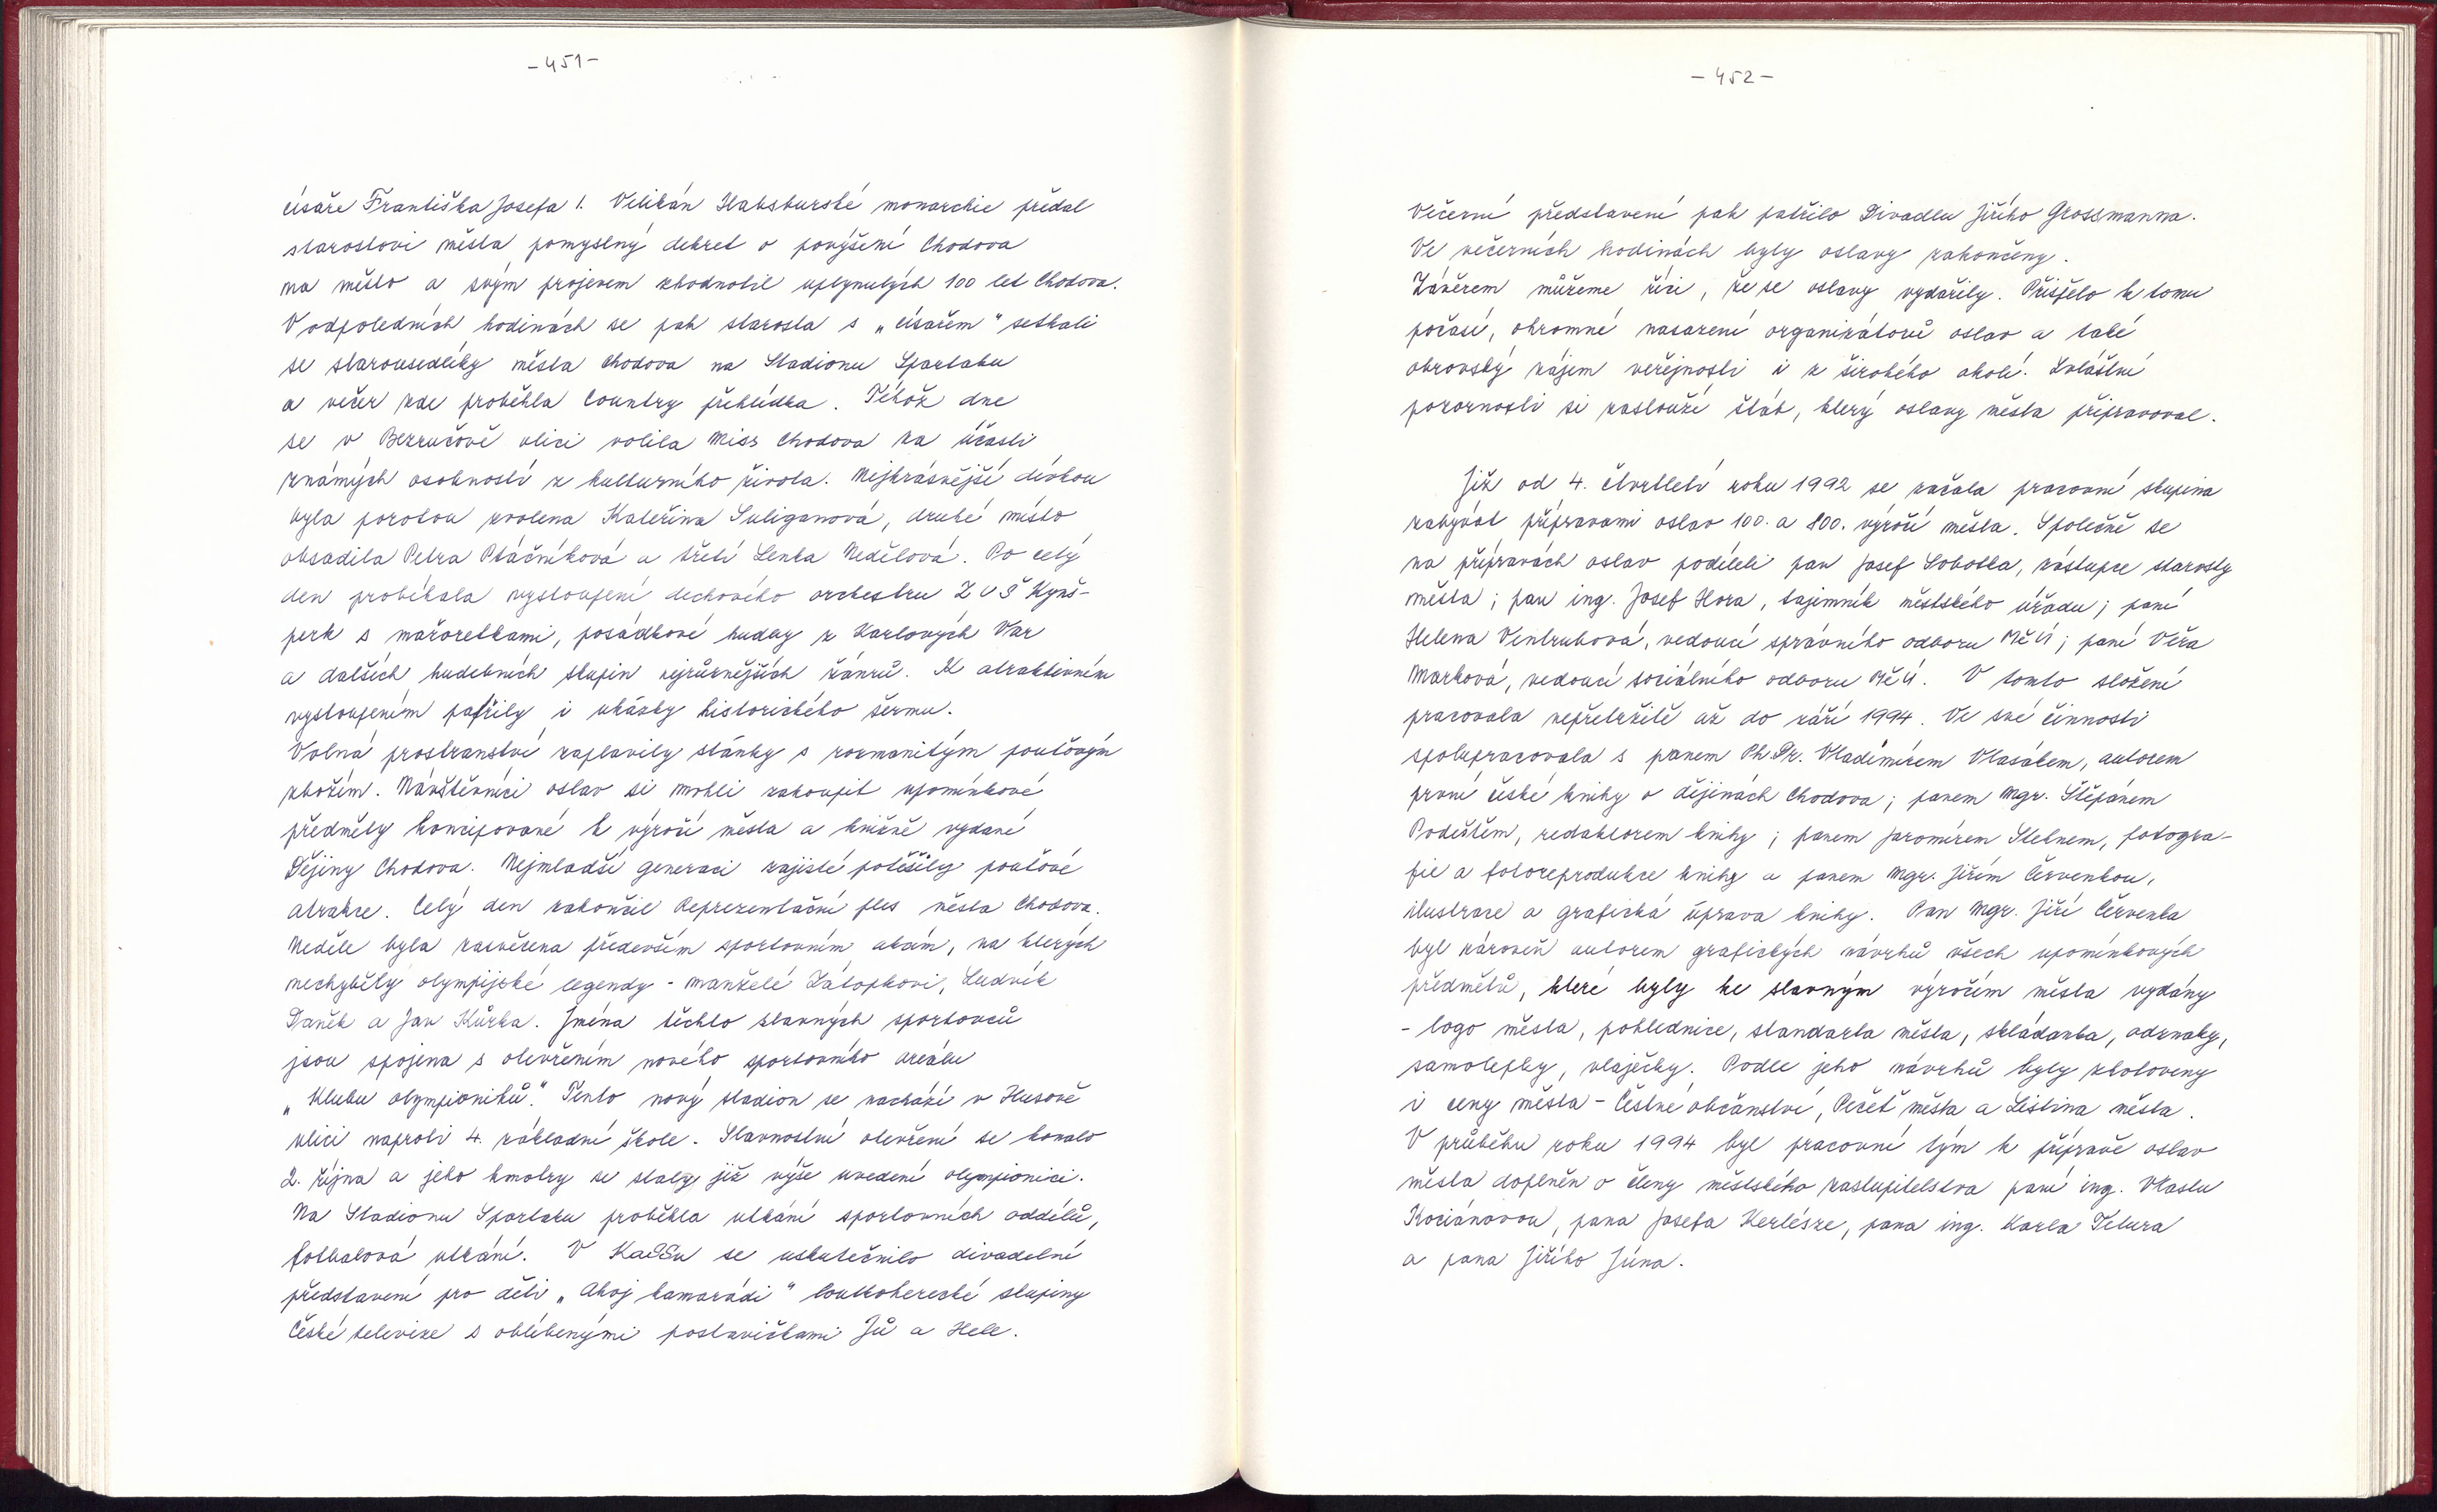 -451-
císaře Františka Josefa 1. Velikán Habsburské monarchie předal
starostovi města pomyslný dekret o povýšení Chodova
na město a svým projevem zhodnotil uplynulých 100 let Chodova.
V odpoledních hodinách se pak starosta s „císařem" setkali
se starousedlíky města Chodova na Stadionu Spartaku
a večer zde proběhla Country přehlídka. Téhož dne
se v Bezručově ulici volila Miss Chodova za účasti
známých osobností z kulturního života. Nejkrásnější dívkou
byla porotou zvolena Kateřina Suliganová, druhé místo
obsadila Petra Ptáčníková a třetí Lenka Nedělová. Po celý
den probíhala vystoupení dechového orchestru ZUŠ Kynš-
perk s mažoretkami, posádkové hudby z Karlových Var
a dalších hudebních skupin nejrůznějších žánrů. K atraktivním
vystoupením patřily i ukázky historického šermu.
Volná prostranství zaplavily stánky s rozmanitým pouťovým
zbožím. Návštěvníci oslav si mohli zakoupit upomínkové
předměty koncipované k výročí města a knižně vydané
Dějiny Chodova. Nejmladší generaci zajisté potěšily pouťové
atrakce. Celý den zakončil Reprezentační ples města Chodova.
Neděle byla zasvěcena především sportovním akcím, na kterých
nechyběly olympijské legendy - manželé Zátopkovi, Ludvík
Daněk a Jan Kůrka. Jména těchto slavných sportovců
jsou spojena s otevřením nového sportovního areálu
„Klubu olympioniků." Tento nový stadion se nachází v Husově
ulici naproti 4. základní škole. Slavnostní otevření se konalo
2. října a jeho kmotry se staly již výše uvedení olympionici.
Na Stadionu Spartaku proběhla utkání sportovních oddílů,
fotbalová utkání. V KaSSu se uskutečnilo divadelní
představení pro děti „Ahoj kamarádi" loutkoherecké skupiny
České televize s oblíbenými postavičkami Jů a Hele.
-452-
Večerní představení pak patřilo Divadlu Jiřího Grossmanna.
Ve večerních hodinách byly oslavy zakončeny.
Závěrem můžeme říci, že se oslavy vydařily. Přispělo k tomu
počasí, ohromné nasazení organizátorů oslav a také
obrovský zájem veřejnosti i z širokého okolí. Zvláštní
pozornosti si zaslouží štáb, který oslavy města připravoval.
Již od 4. čtvrtletí roku 1992 se začala pracovní skupina
zabývat přípravami oslav 100. a 800. výročí města. Společně se
na přípravách oslav podíleli pan Josef Sobotka, zástupce starosty
města; pan ing. Josef Hora, tajemník městského úřadu; paní
Helena Ventrubová, vedoucí správního odboru MěÚ; paní Věra
Marková, vedoucí sociálního odboru MěÚ. V tomto složení
pracovala nepřetržitě až do září 1994. Ve své činnosti
spolupracovala s panem PhDr. Vladimírem Vlasákem, autorem
první české knihy o dějinách Chodova; panem Mgr. Štěpánem
Podeštěm, redaktorem knihy; panem Jaromírem Stebnem, fotogra-
fie a fotoreprodukce knihy a panem Mgr. Jiřím Červenkou,
ilustrace a grafická úprava knihy. Pan Mgr. Jiří Červenka
byl zároveň autorem grafických návrhů všech upomínkových
předmětů, které byly ke slavným výročím města vydány
- logo města, pohlednice, standarta města, skládanka, odznaky,
samolepky, vlaječky. Podle jeho návrhů byly zhotoveny
i ceny města - Čestné občanství, Pečeť města a Listina města.
V průběhu roku 1994 byl pracovní tým k přípravě oslav
města doplněn o členy městského zastupitelstva paní ing. Vlastu
Kociánovou, pana Josefa Kerlésze, pana ing. Karla Tetura
a pana Jiřího Júna.